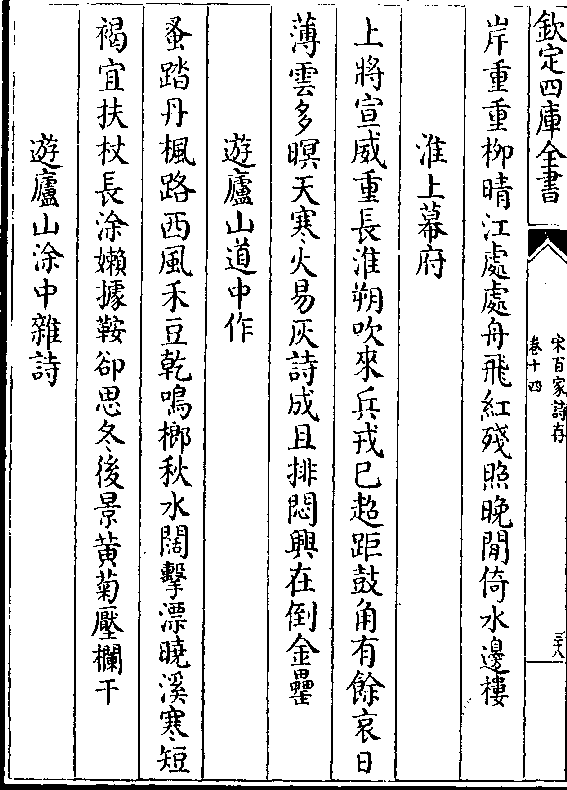 欽定四庫全書
宋百家詩存
卷十四
三八
岸重重柳晴江處處舟飛紅殘照晚閒倚水邊樓
淮上幕府
上將宣威重長淮朔吹來兵戎已超距鼓角有餘哀日
薄雲多暝天寒火易灰詩成且排悶興在倒金罍
遊廬山道中作
蚤踏丹楓路西風禾豆乾鳴榔秋水闊擊漂曉溪寒短
褐宜扶杖長涂嬾據鞍卻思冬後景黄菊壓欄干
遊廬山涂中雜詩